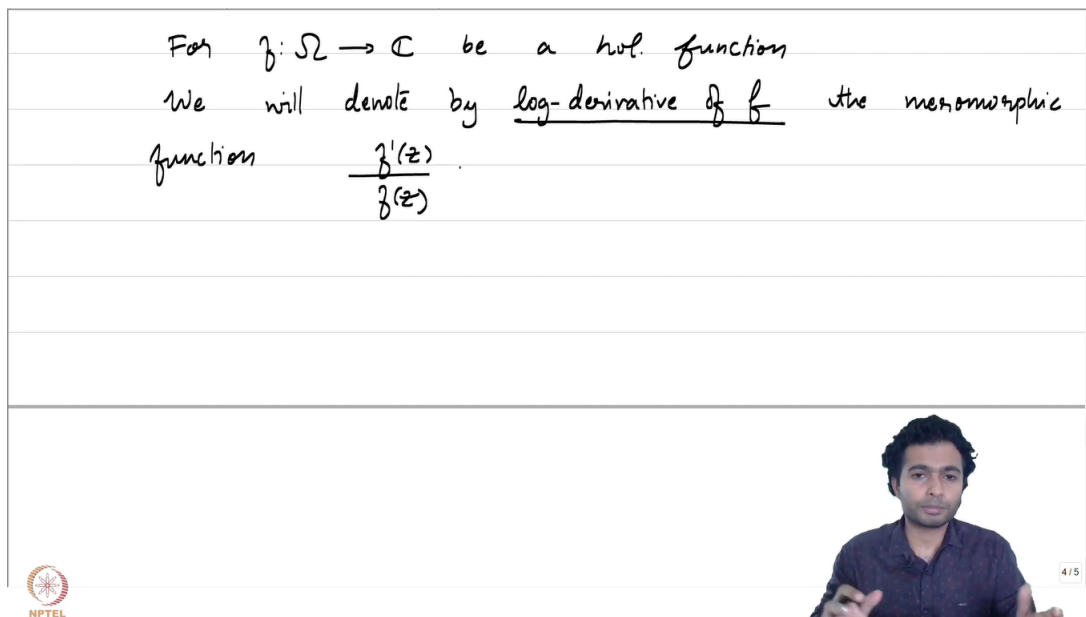 For f: Ω → ℂ be a hol. function
We will denote by log-derivative of f the meromorphic
function f'(z)/f(z).
4 / 5
NPTEL